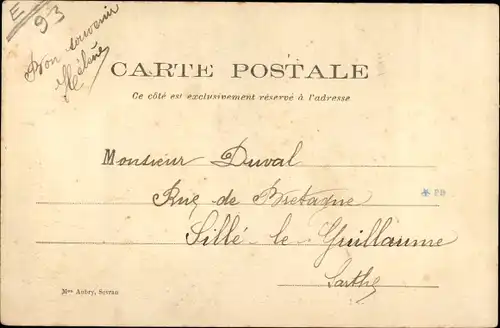 E
93
Bon souvenir
Hélène
CARTE POSTALE
Ce côté est exclusivement réservé à l'adresse
Monsieur Duval
Rue de Bretagne
Sillé-le-Guillaume
Sarthe
Mme Aubry, Sevran